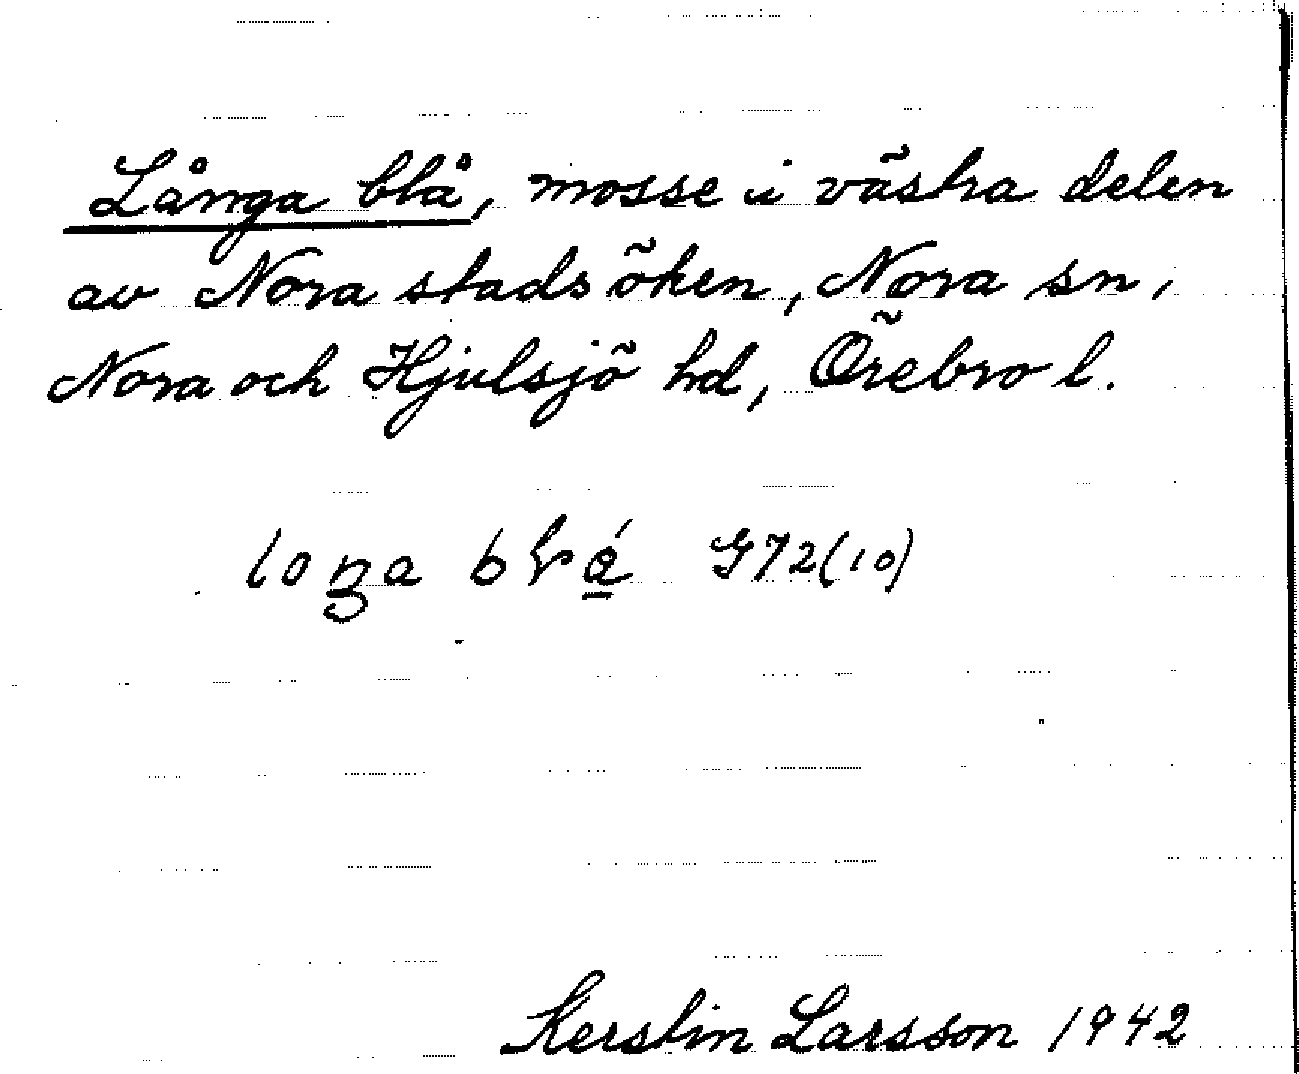 Långa blå, mosse i västra delen
av Nora stadsöken, Nora sn,
Nora och Hjulsjö hd, Örebro l.
G72(10)
Kerstin Larsson 1942